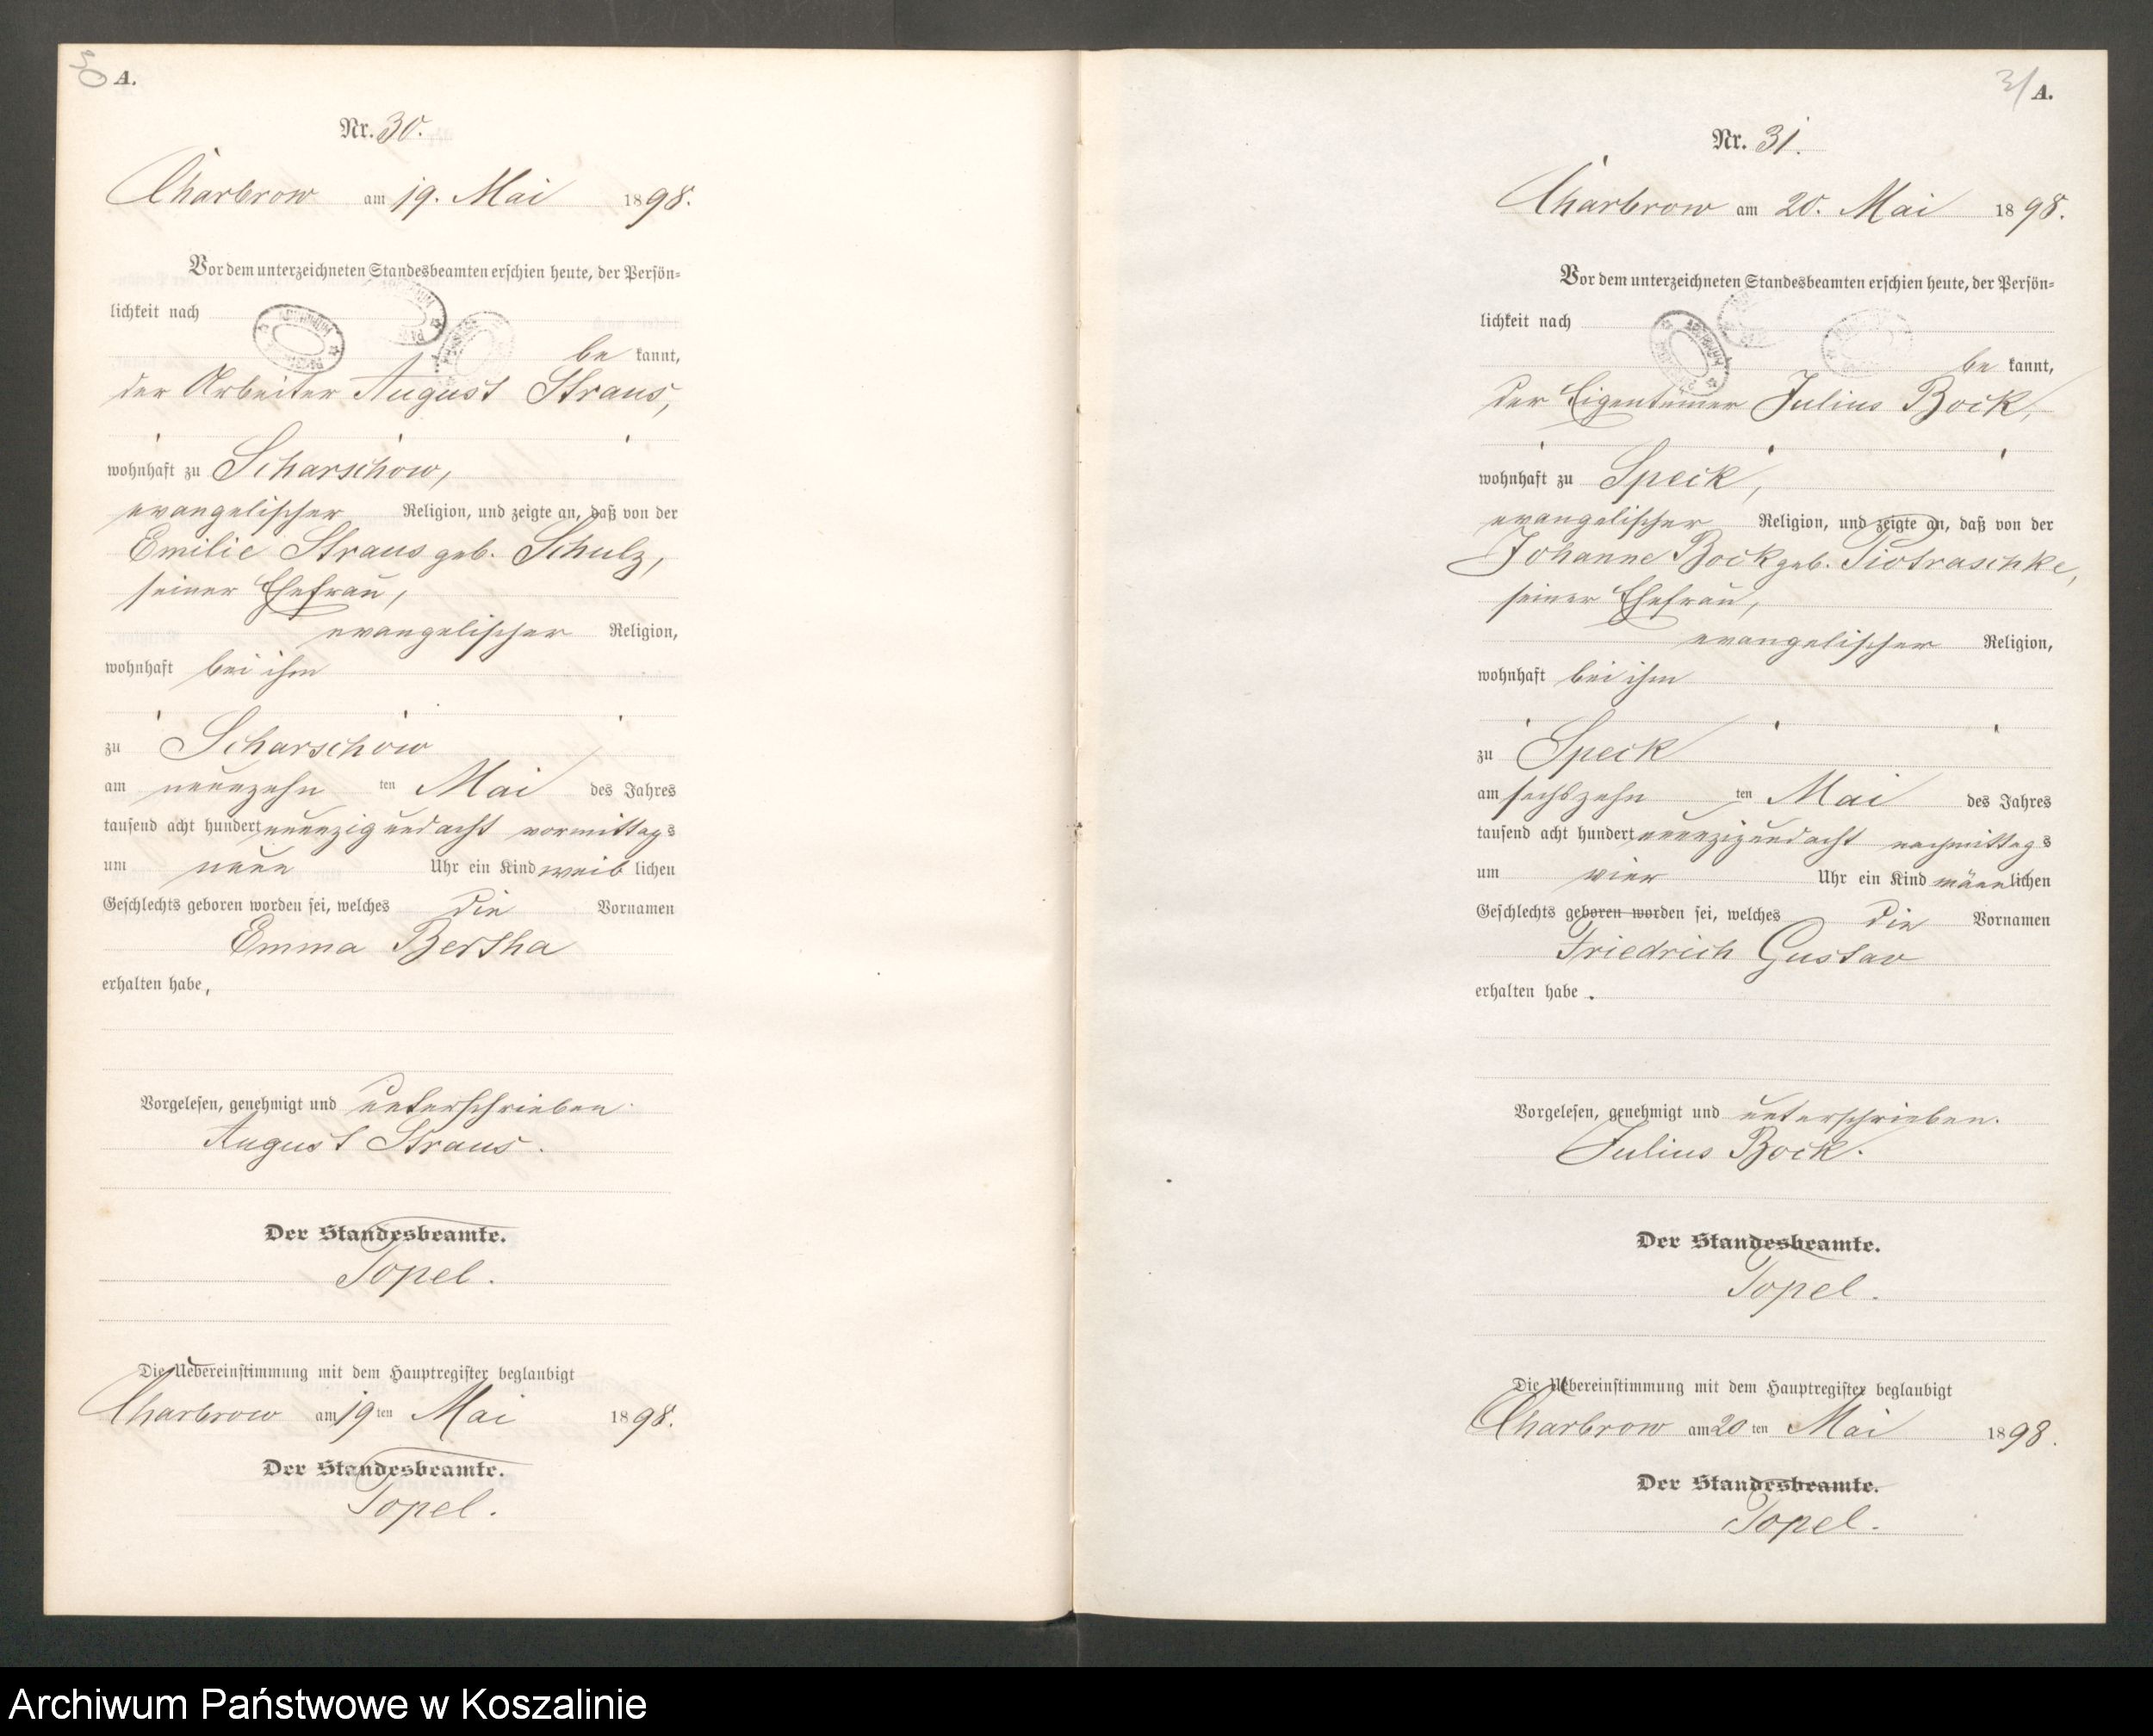 30 A.
Nr. 30.
Charbrow am 19. Mai 1898.
Vor dem unterzeichneten Standesbeamten erschien heute, der Persön=
lichkeit nach
be kannt,
der Arbeiter August Straus,
wohnhaft zu Scharschow,
evangelischer Religion, und zeigte an, daß von der
Emilie Straus geb. Schulz,
seiner Ehefrau,
evangelischer Religion,
wohnhaft bei ihm
zu Scharschow
am neunzehn ten Mai des Jahres
tausend acht hundert neunzig und acht vormittags
um neun Uhr ein Kind weib lichen
Geschlechts geboren worden sei, welches die Vornamen
Emma Bertha
erhalten habe,
Vorgelesen, genehmigt und unterschrieben.
August Straus.
Der Standesbeamte.
Topel.
Die Uebereinstimmung mit dem Hauptregister beglaubigt
Charbrow am 19 ten Mai 1898.
Der Standesbeamte.
Topel.
31 A.
Nr. 31.
Charbrow am 20. Mai 1898.
Vor dem unterzeichneten Standesbeamten erschien heute, der Persön=
lichkeit nach
be kannt,
der Eigentümer Julius Bock,
wohnhaft zu Speck,
evangelischer Religion, und zeigte an, daß von der
Johanne Bock geb. Piotraschke,
seiner Ehefrau,
evangelischer Religion,
wohnhaft bei ihm
zu Speck
am sechszehn ten Mai des Jahres
tausend acht hundert neunzig und acht nachmittags
um vier Uhr ein Kind männlichen
Geschlechts geboren worden sei, welches die Vornamen
Friedrich Gustav
erhalten habe.
Vorgelesen, genehmigt und unterschrieben.
Julius Bock.
Der Standesbeamte.
Topel.
Die Uebereinstimmung mit dem Hauptregister beglaubigt
Charbrow am 20 ten Mai 1898.
Der Standesbeamte.
Topel.
Archiwum Państwowe w Koszalinie